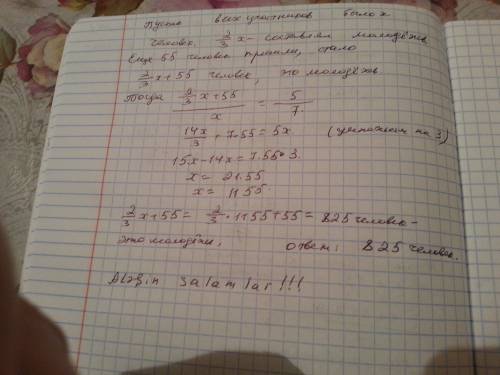 Пусть всех участников было x
человек, 2/3 x - составлял молодёжь
Еще 55 человек пришли, стало
2/3 x + 55 человек, это молодёжь
Тогда (2/3 x + 55)/x = 5/7
14x/3 + 7·55 = 5x (умножаем на 3)
15x - 14x = 7·55·3
x = 21·55
x = 1155
2/3 x + 55 = 2/3 · 1155 + 55 = 825 человек -
это молодёжь, ответ: 825 человек.
salamlar!!!